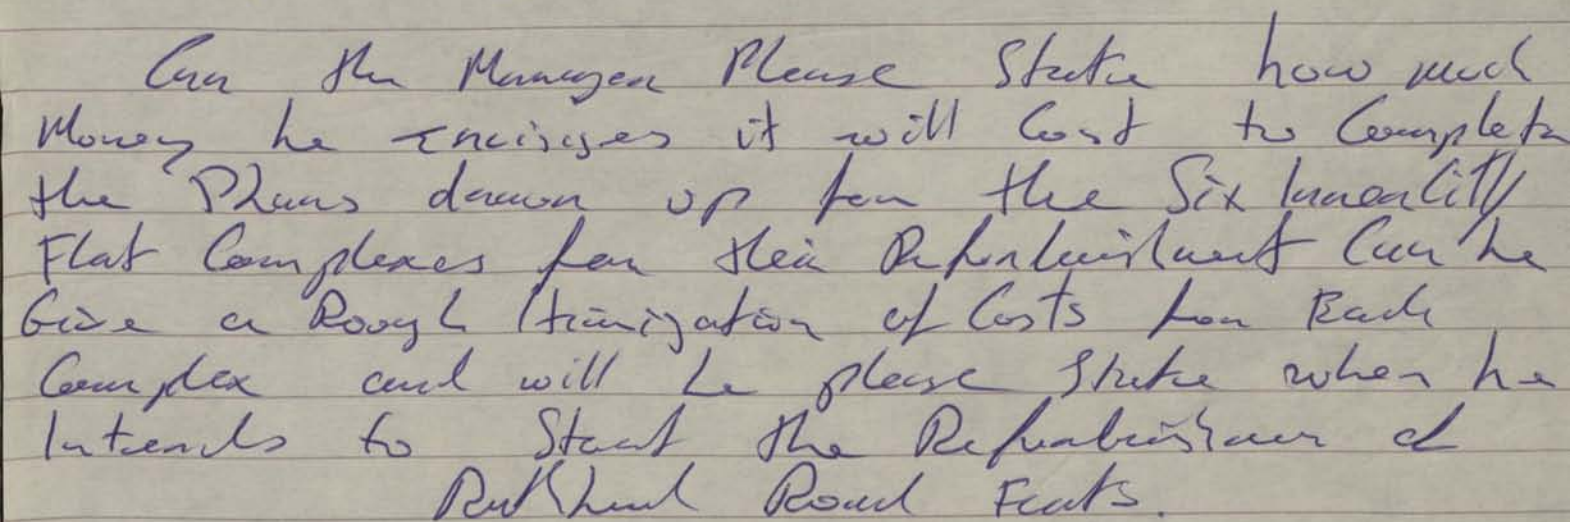 Can the Manager Please State how much
Money he envisages it will Cost to Complete
the Plans drawn up for the Six Inner City
Flat Complexes for their Refurbishment Can he
Give a Rough Itimization of Costs for Each
Complex and will he please State when he
Intends to Start the Refurbishment of
Road Flats.